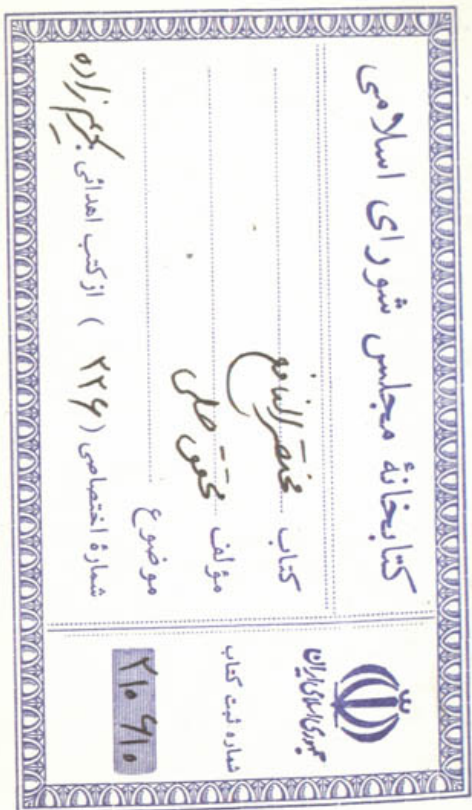 کتابخانهٔ مجلس شورای اسلامی
کتاب مختصر النافع
مؤلف محقق حلی
موضوع
شمارهٔ اختصاصی ( ۲۲۶ ) از کتب اهدائی
جمهوری اسلامی ایران
شماره ثبت کتاب
۲۱۰۶۱۰